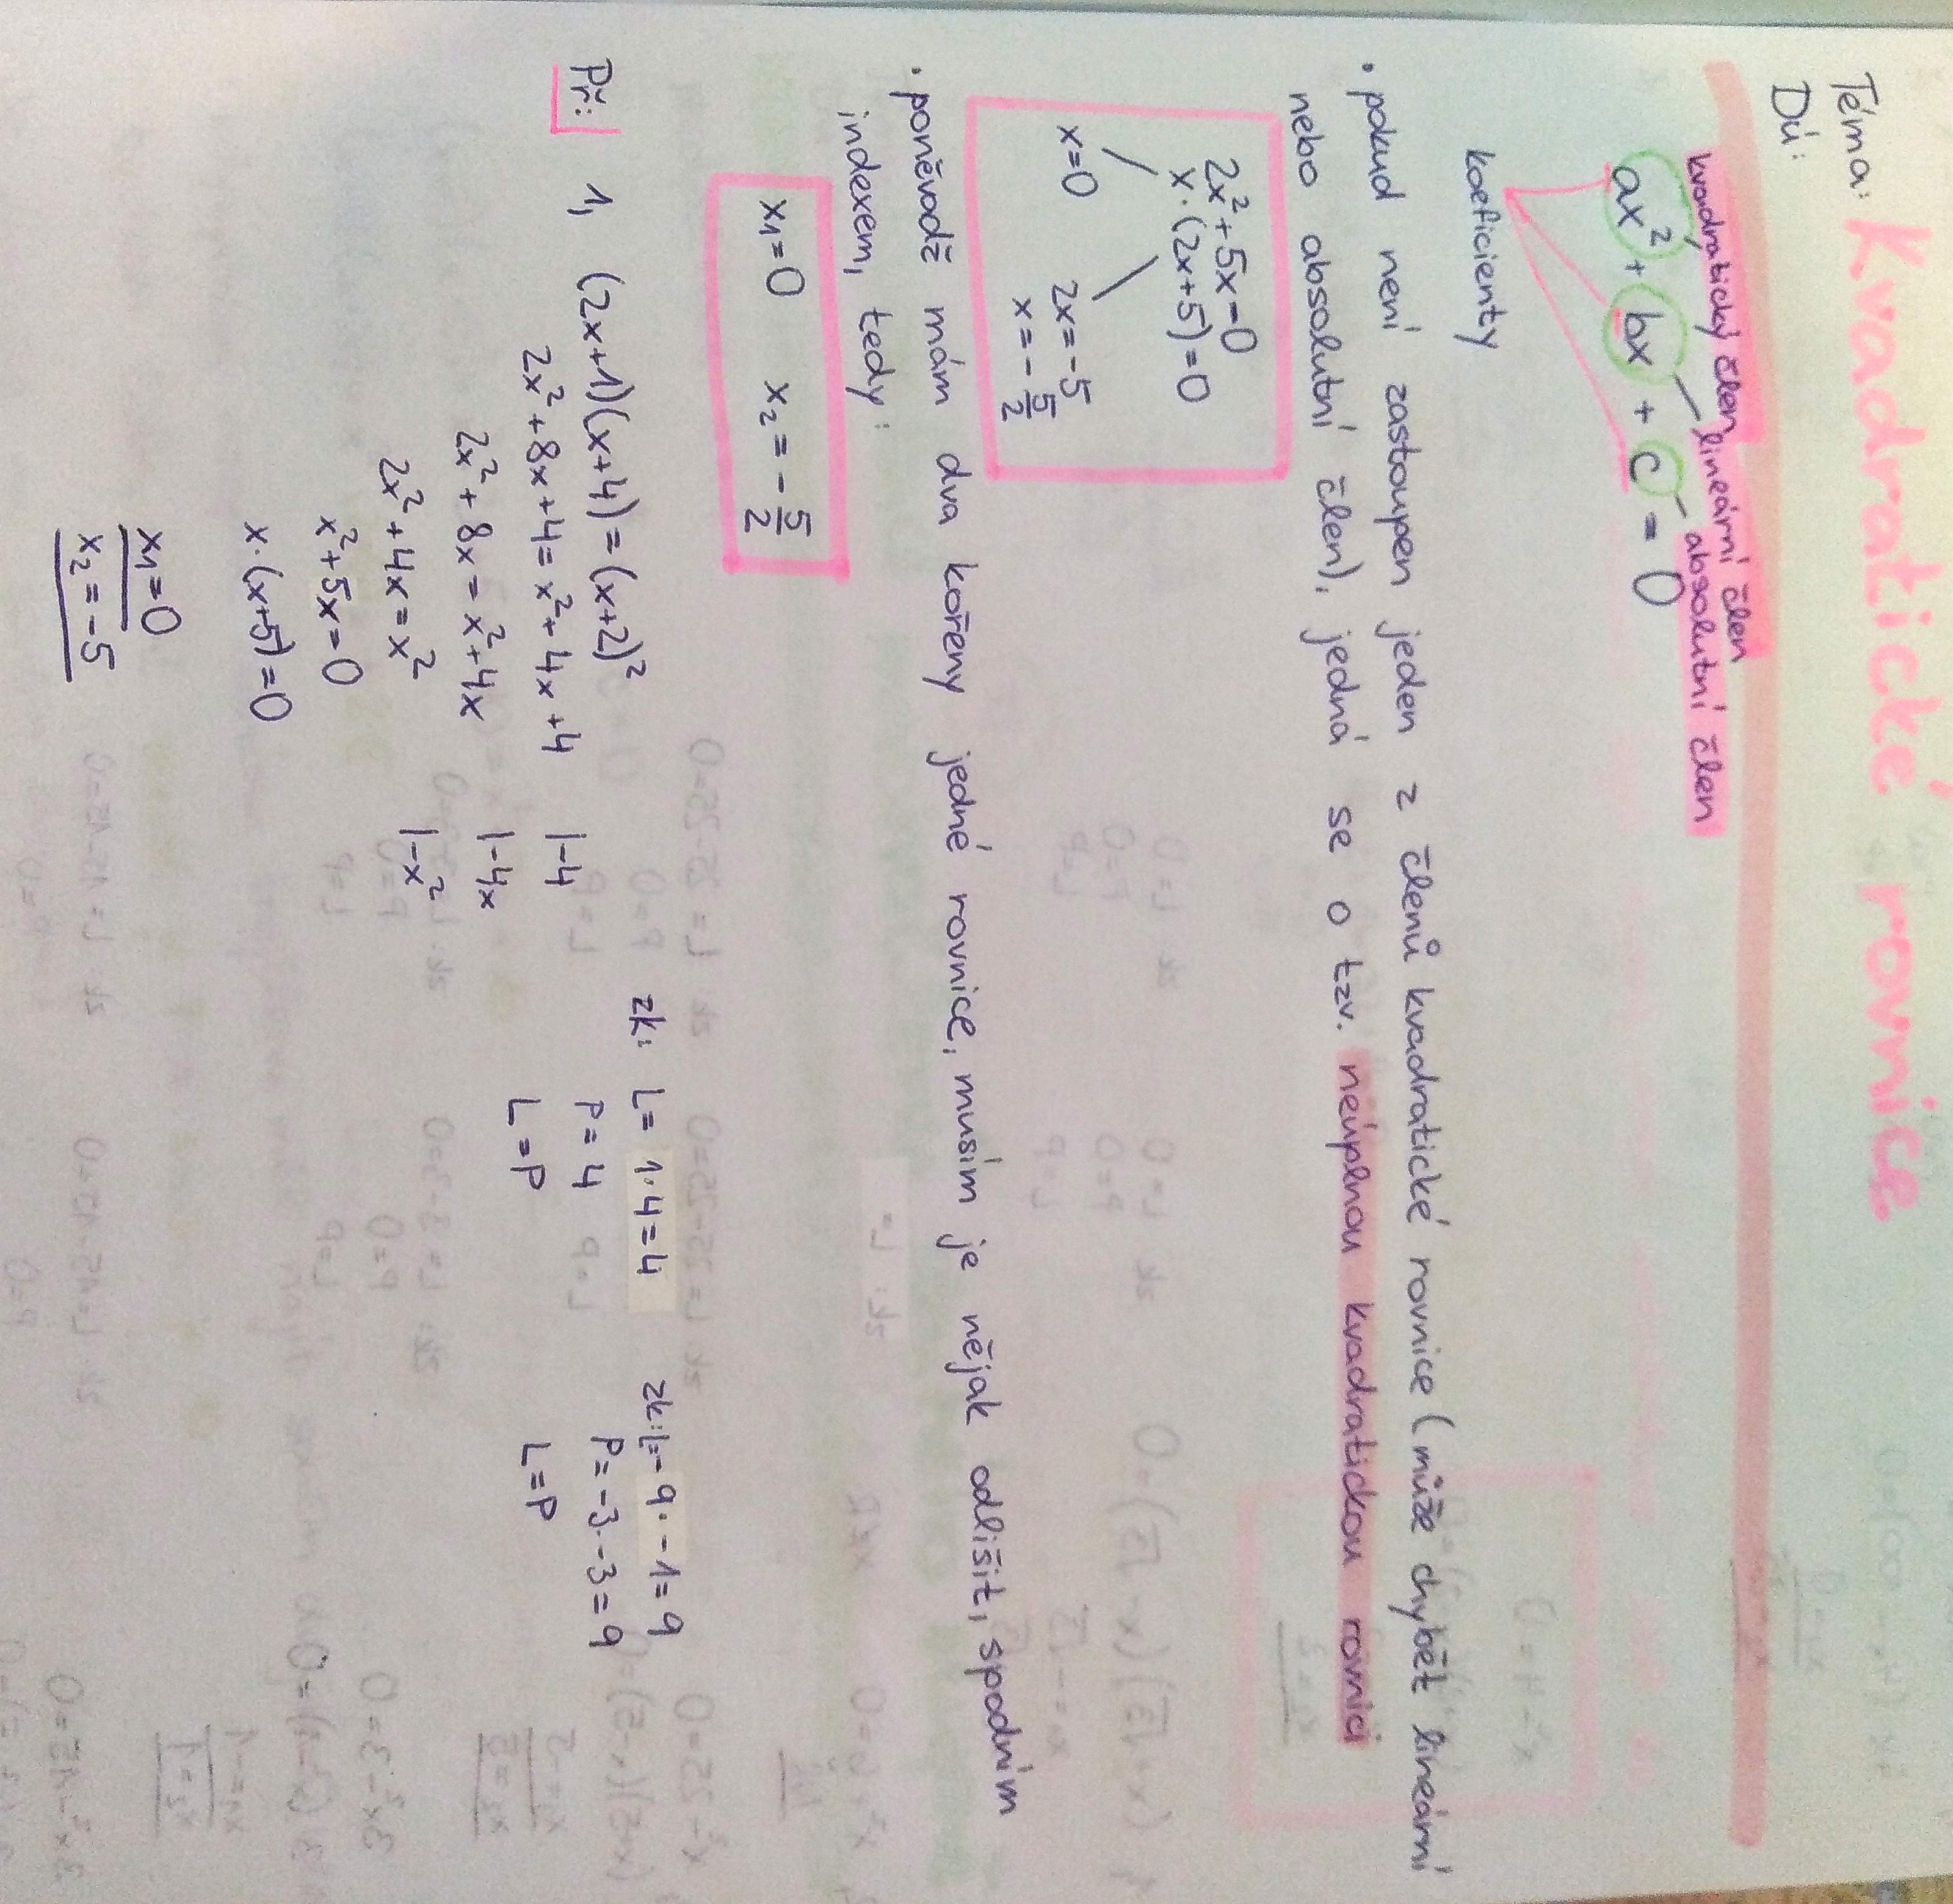 Téma: Kvadratické rovnice
Dú:
kvadratický člen lineární člen absolutní člen
ax² + bx + c = 0
koeficienty
• pokud není zastoupen jeden z členů kvadratické rovnice (může chybět lineární
nebo absolutní člen), jedná se o tzv. neúplnou kvadratickou rovnici
2x² + 5x = 0
x · (2x+5) = 0
x = 0 2x = -5
x = - 5/2
• poněvadž mám dva kořeny jedné rovnice, musím je nějak odlišit, spodním
indexem, tedy:
x₁ = 0 x₂ = - 5/2
Př: 1, (2x+1)(x+4) = (x+2)²
2x² + 8x + 4 = x² + 4x + 4 |-4
2x² + 8x = x² + 4x |-4x
2x² + 4x = x² |-x²
x² + 5x = 0
x · (x+5) = 0
x₁ = 0
x₂ = -5
zk: L = 1·4 = 4
P = 4
L = P
zk: L = -9 · -1 = 9
P = -3 · -3 = 9
L = P